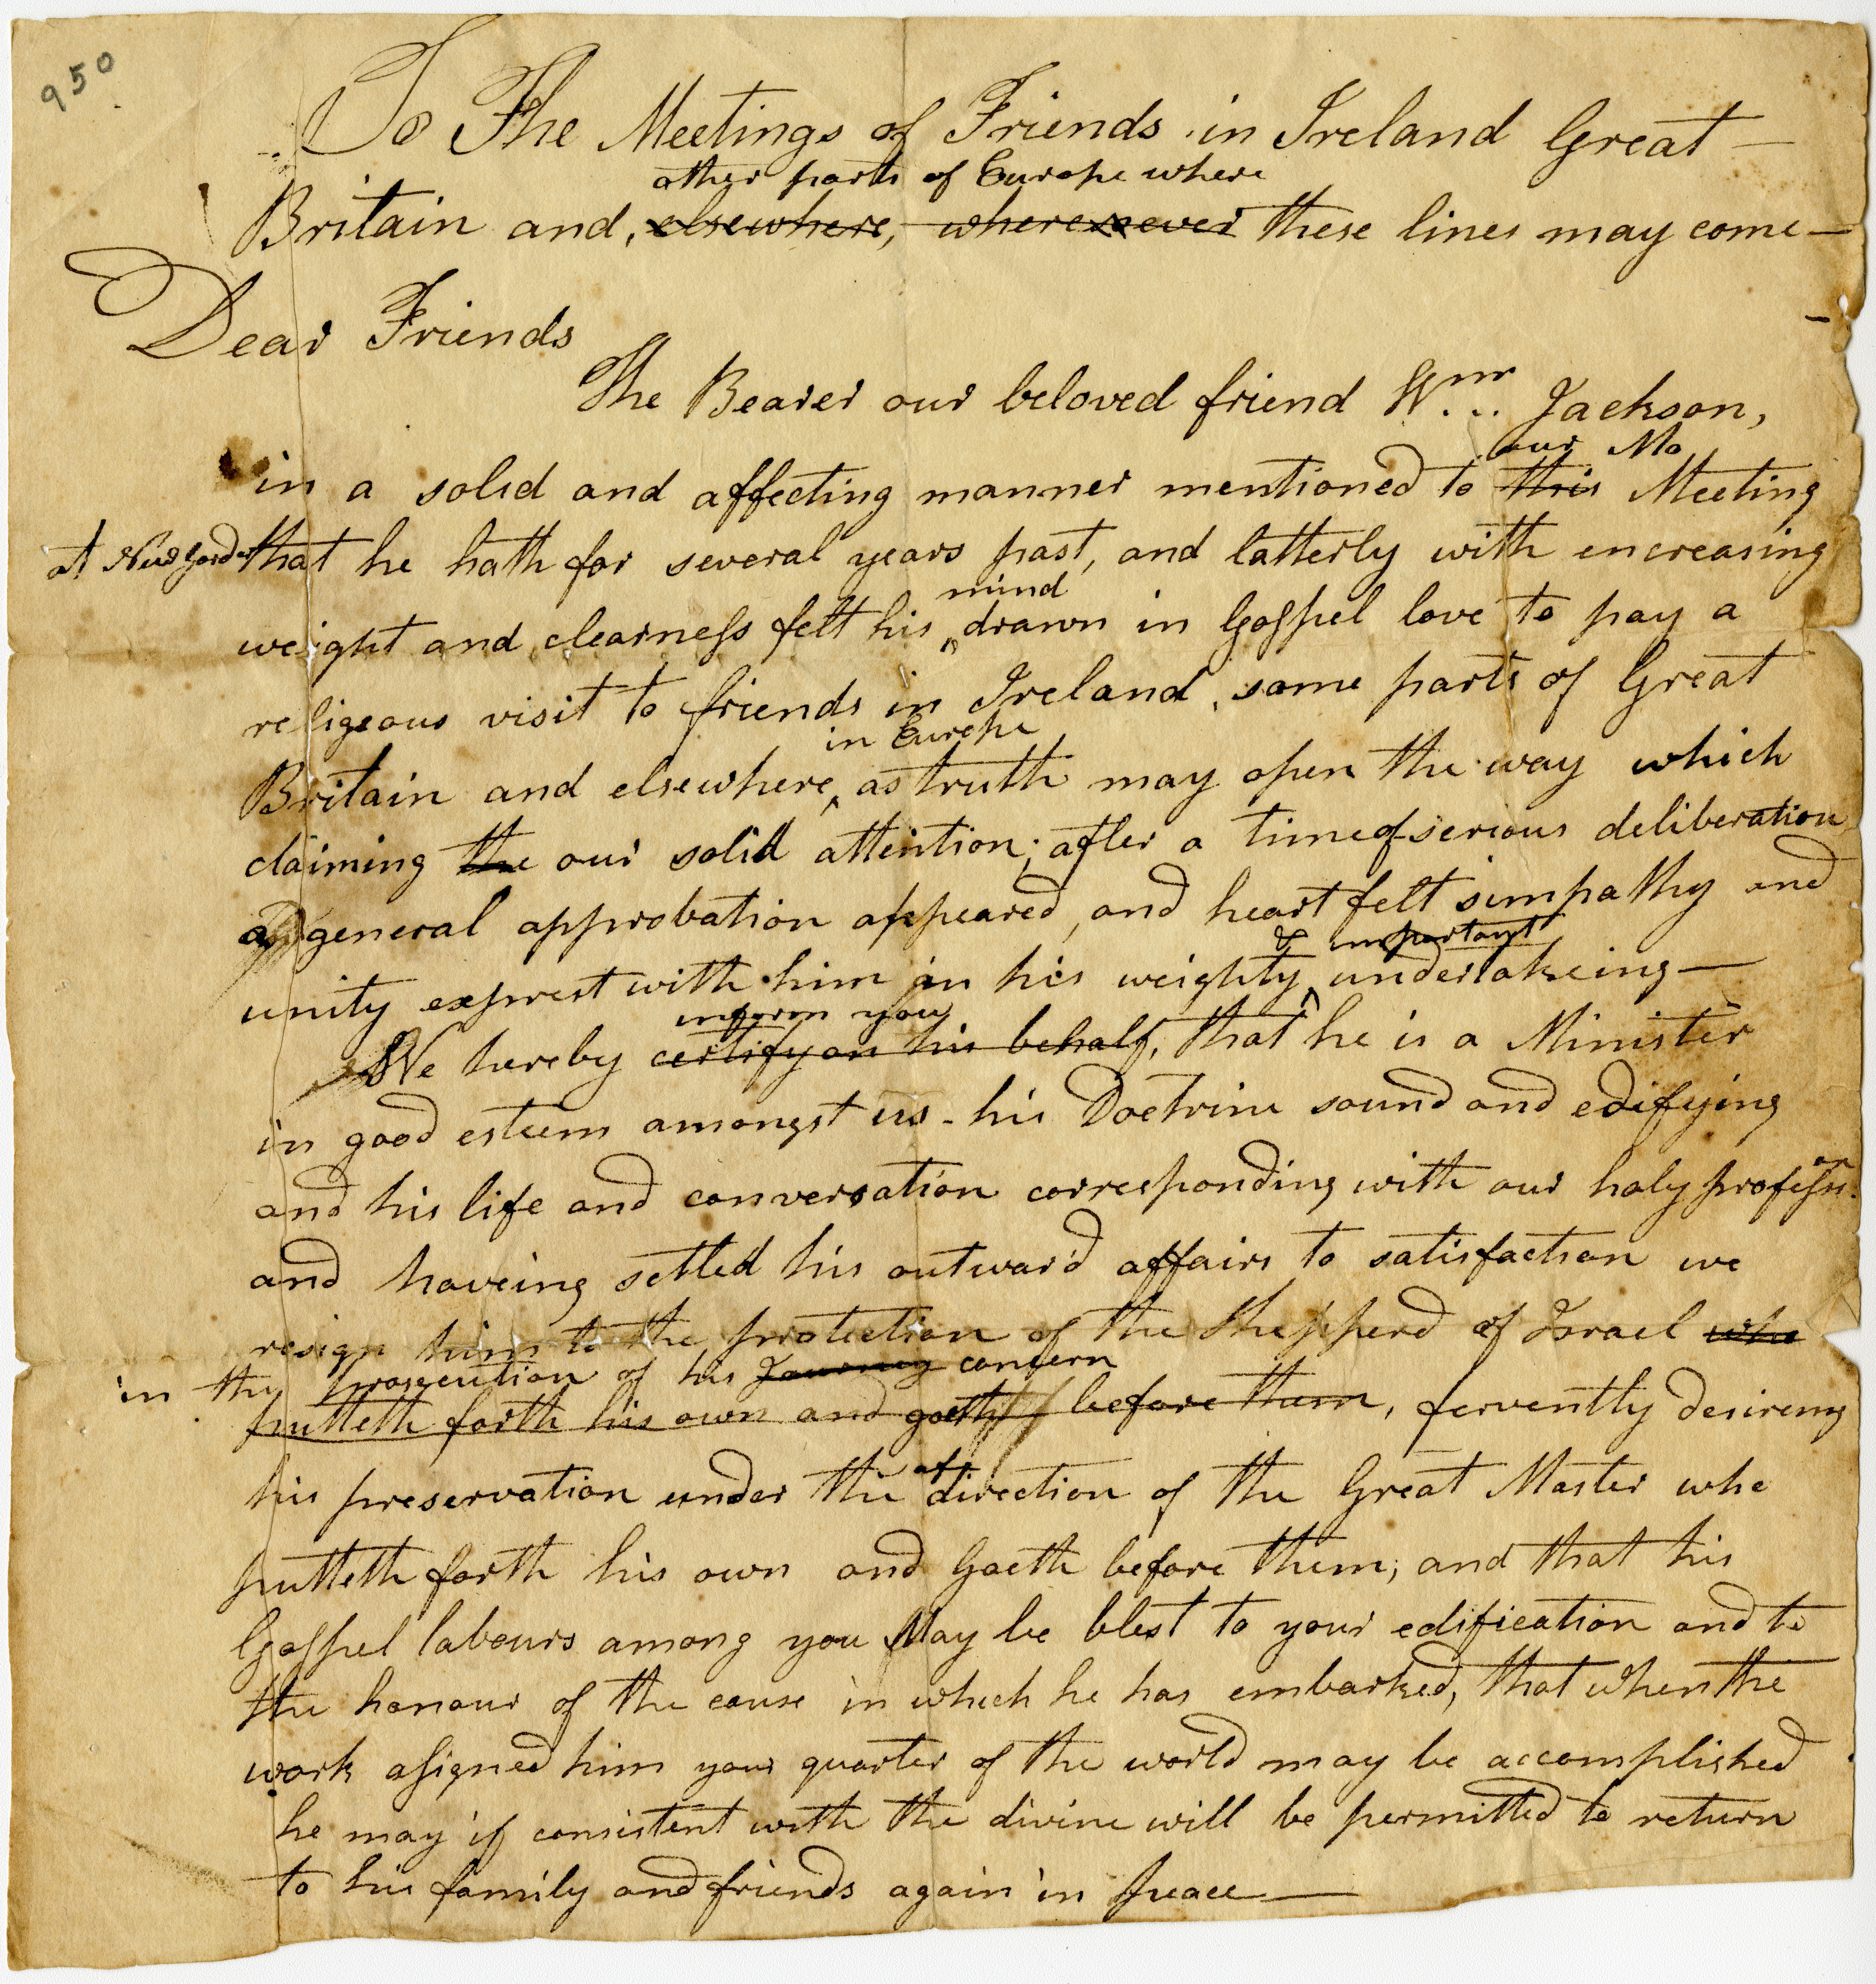 950
To The Meetings of Friends in Ireland Great —
other parts of Europe where
Britain and, elsewhere, wheresoever these lines may come —
Dear Friends
The Bearer our beloved friend Wm Jackson,
our Mo
in a solid and affecting manner mentioned to this Meeting
at New Garden that he hath for several years past, and latterly with encreasing
mind
weight and clearness felt his drawn in Gospel love to pay a
religeous visit to friends in Ireland, some parts of Great
in Europe
Britain and elsewhere, as truth may open the way which
claiming the our solid attention; after a time of serious deliberation
a general approbation appeared, and heart felt simpathy and
& important
unity exprest with him in his weighty undertakeing —
inform you
We hereby certify on his behalf, that he is a Minister
in good esteem amongst us - his Doctrine sound and edifying
and his life and conversation corresponding with our holy profession
and haveing settled his outward affairs to satisfaction we
resign him to the protection of the Shepperd of Israel who
in the prosecution of his Journey concern
putteth forth his own and goeth before them, fervently desireing
his preservation under the direction of the Great Master who
putteth forth his own and Goeth before them; and that his
Gospel labours among you May be blest to your edification and to
the honour of the cause in which he has embarked, that when the
work assigned him your quarter of the world may be accomplished
he may if consistent with the divine will be permitted to return
to his family and friends again in peace —